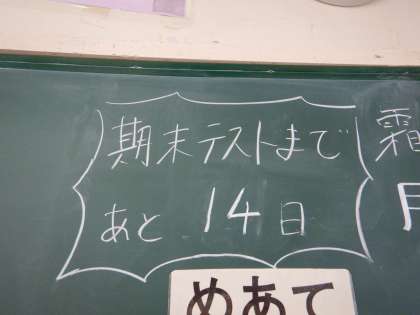 期末テストまで
あと 14日
霜
めあて